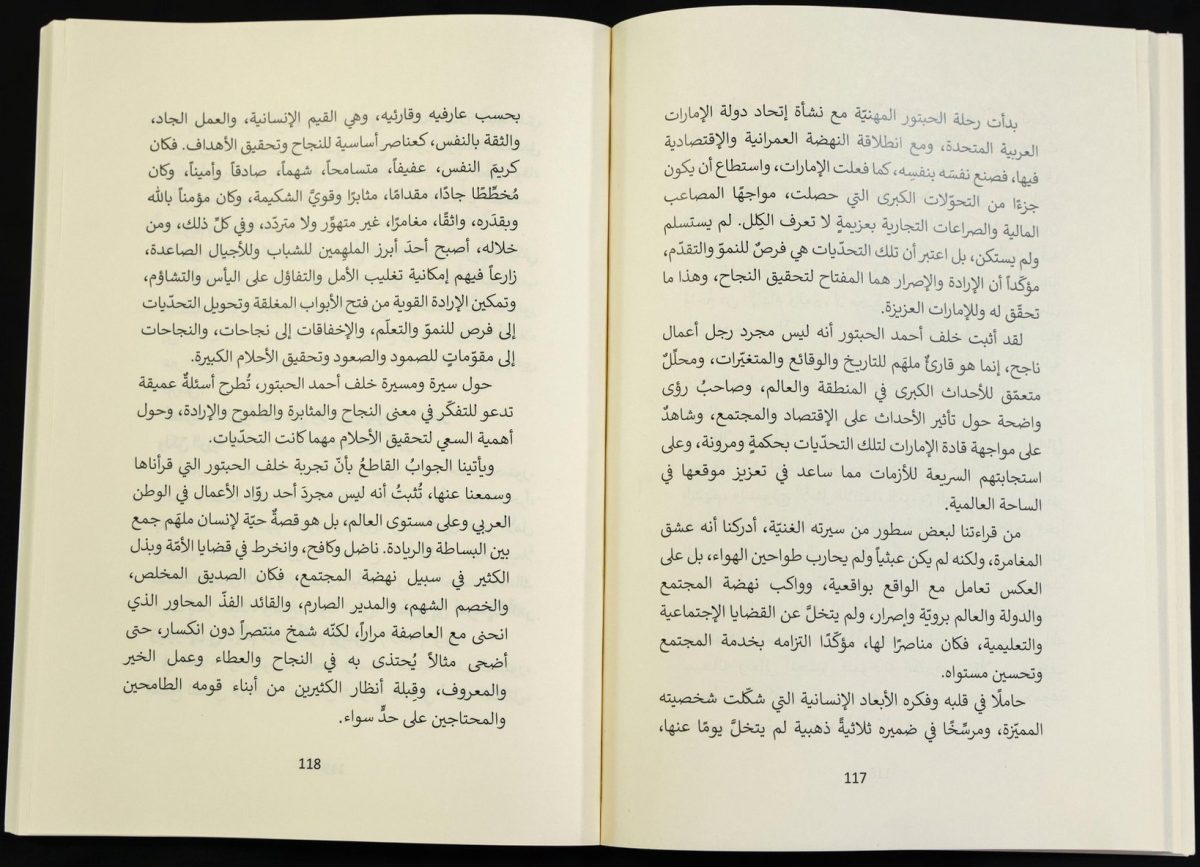 بدأت رحلة الحبتور المهنيّة مع نشأة إتحاد دولة الإمارات
العربية المتحدة، ومع انطلاقة النهضة العمرانية والإقتصادية
فيها، فصنع نفسَه بنفسِه، كما فعلت الإمارات، واستطاع أن يكون
جزءًا من التحوّلات الكبرى التي حصلت، مواجهًا المصاعب
المالية والصراعات التجارية بعزيمةٍ لا تعرف الكِلل. لم يستسلم
ولم يستكن، بل اعتبر أن تلك التحدّيات هي فرصٌ للنموّ والتقدّم،
مؤكّداً أن الإرادة والإصرار هما المفتاح لتحقيق النجاح، وهذا ما
تحقّق له وللإمارات العزيزة.
لقد أثبت خلف أحمد الحبتور أنه ليس مجرد رجل أعمال
ناجح، إنما هو قارئٌ ملهَم للتاريخ والوقائع والمتغيّرات، ومحلِّلٌ
متعمّق للأحداث الكبرى في المنطقة والعالم، وصاحبُ رؤى
واضحة حول تأثير الأحداث على الإقتصاد والمجتمع، وشاهدٌ
على مواجهة قادة الإمارات لتلك التحدّيات بحكمةٍ ومرونة، وعلى
استجابتهم السريعة للأزمات مما ساعد في تعزيز موقعها في
الساحة العالمية.
من قراءتنا لبعض سطور من سيرته الغنيّة، أدركنا أنه عشق
المغامرة، ولكنه لم يكن عبثياً ولم يحارب طواحين الهواء، بل على
العكس تعامل مع الواقع بواقعية، وواكب نهضة المجتمع
والدولة والعالم برويّة وإصرار، ولم يتخلَّ عن القضايا الإجتماعية
والتعليمية، فكان مناصرًا لها، مؤكّدًا التزامه بخدمة المجتمع
وتحسين مستواه.
حاملًا في قلبه وفكره الأبعاد الإنسانية التي شكّلت شخصيته
المميّزة، ومرسِّخًا في ضميره ثلاثيةً ذهبية لم يتخلَّ يومًا عنها،
117
بحسب عارفيه وقارئيه، وهي القيم الإنسانية، والعمل الجاد،
والثقة بالنفس، كعناصر أساسية للنجاح وتحقيق الأهداف. فكان
كريمَ النفس، عفيفاً، متسامحاً، شهماً، صادقاً وأميناً، وكان
مُخطِّطًا جادًا، مقدامًا، مثابرًا وقويَّ الشكيمة، وكان مؤمناً بالله
وبقدَره، واثقًا، مغامرًا، غير متهوِّر ولا متردّد، وفي كلِّ ذلك، ومن
خلاله، أصبح أحدَ أبرز الملهِمين للشباب وللأجيال الصاعدة،
زارعاً فيهم إمكانية تغليب الأمل والتفاؤل على اليأس والتشاؤم،
وتمكين الإرادة القوية من فتح الأبواب المغلقة وتحويل التحدّيات
إلى فرص للنموّ والتعلّم، والإخفاقات إلى نجاحات، والنجاحات
إلى مقوّماتٍ للصمود والصعود وتحقيق الأحلام الكبيرة.
حول سيرة ومسيرة خلف أحمد الحبتور، تُطرح أسئلةٌ عميقة
تدعو للتفكّر في معنى النجاح والمثابرة والطموح والإرادة، وحول
أهمية السعي لتحقيق الأحلام مهما كانت التحدّيات.
ويأتينا الجوابُ القاطعُ بأنّ تجربة خلف الحبتور التي قرأناها
وسمعنا عنها، تُثبتُ أنه ليس مجردَ أحد روّاد الأعمال في الوطن
العربي وعلى مستوى العالم، بل هو قصةٌ حيّة لإنسان ملهَم جمع
بين البساطة والريادة. ناضل وكافح، وانخرط في قضايا الأمّة وبذل
الكثير في سبيل نهضة المجتمع، فكان الصديق المخلص،
والخصم الشهم، والمدير الصارم، والقائد الفذّ المحاور الذي
انحنى مع العاصفة مراراً، لكنّه شمخ منتصراً دون انكسار، حتى
أضحى مثالاً يُحتذى به في النجاح والعطاء وعمل الخير
والمعروف، وقِبلة أنظار الكثيرين من أبناء قومه الطامحين
والمحتاجين على حدٍّ سواء.
118